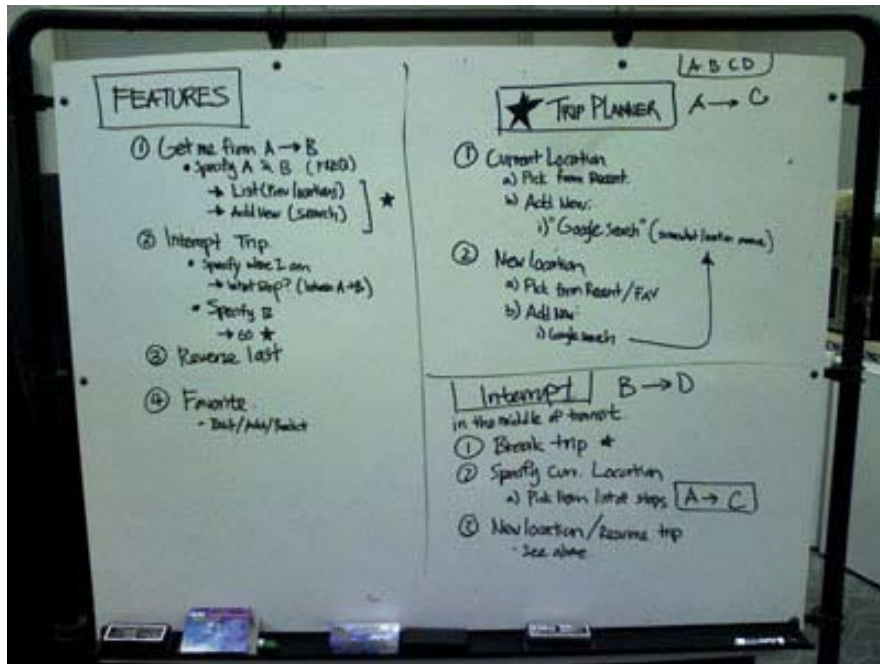 FEATURES
① Get me from A → B
• Specify A & B
→ List (Prev locations)
→ Add New (search)
★
② Interrupt Trip
• Specify where I am
→ What stop? (between A→B)
• Specify B
→ GO ★
③ Reverse last
④ Favorite
- /Add/
A B C D
★ TRIP PLANNER
A → C
① Current Location
a) Pick from Recent
b) Add New:
i) "Google Search" (location name)
② New location
a) Pick from Recent/FAV
b) Add New:
i) Google search
Interrupt
B → D
in the middle of transit
① Break trip ★
② Specify Curr. Location
a) Pick from list of stops
A → C
③ New location/Resume trip
- See above